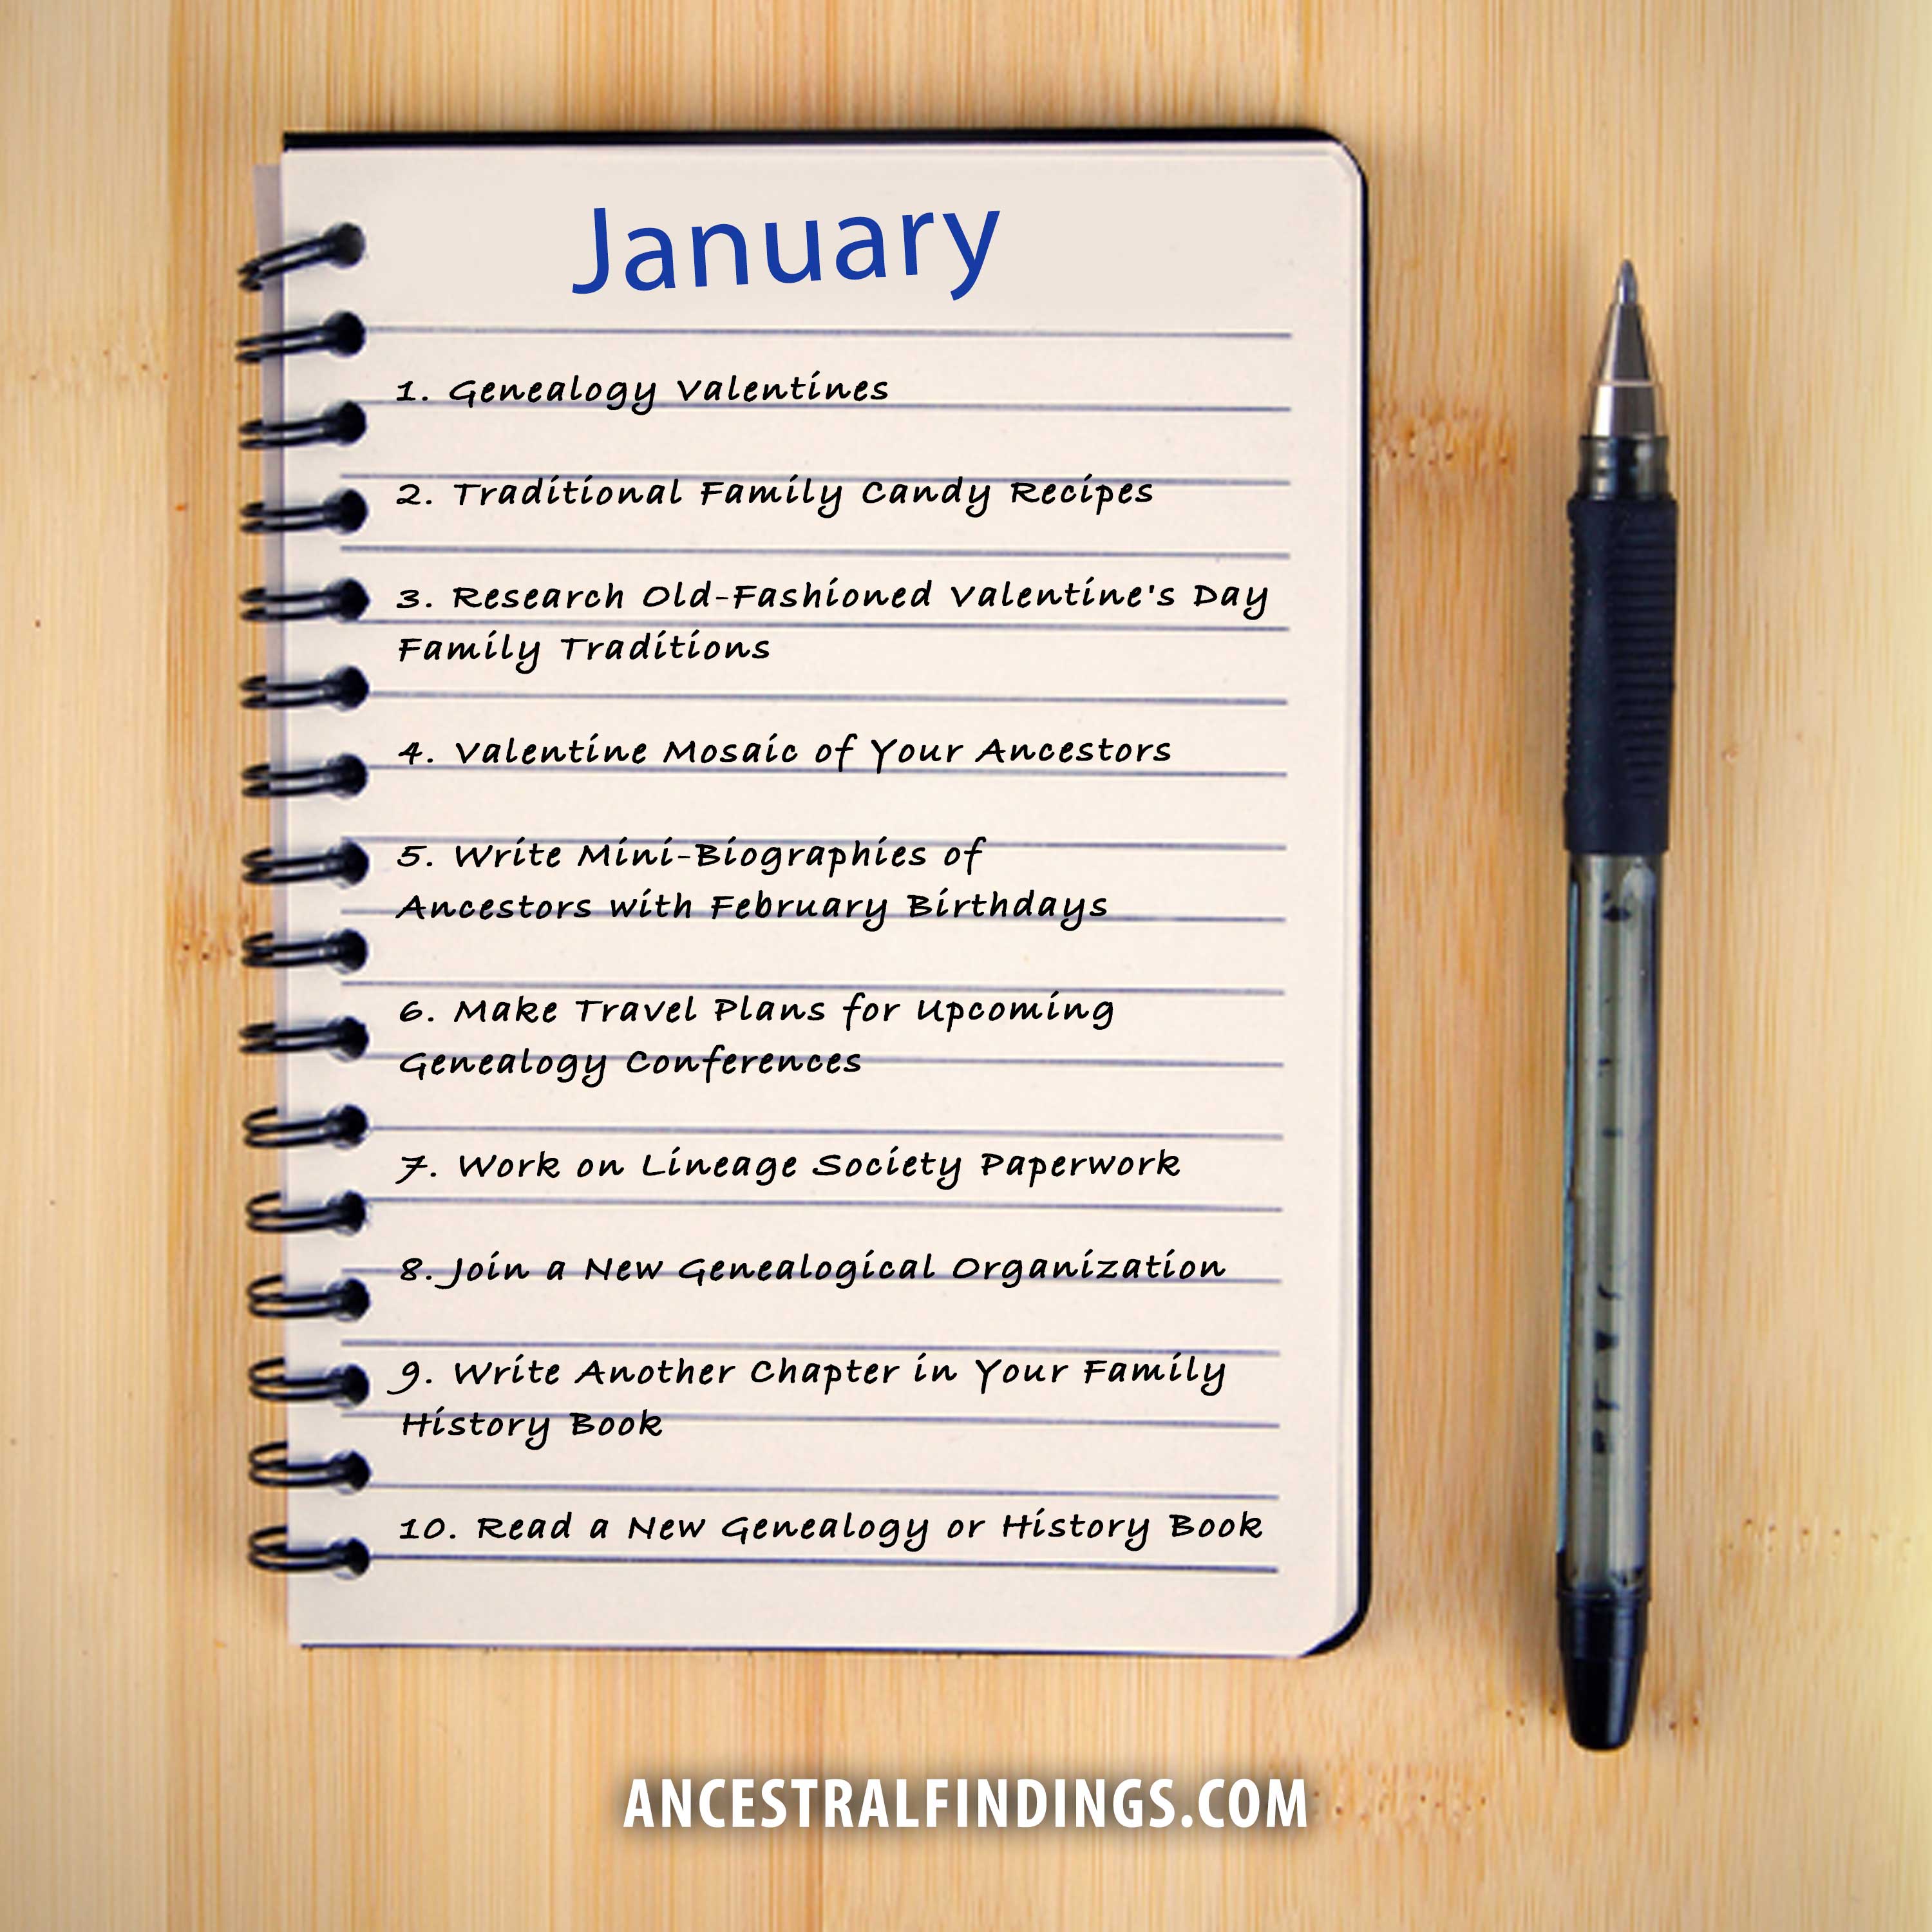 January
1. Genealogy Valentines
2. Traditional Family Candy Recipes
3. Research Old-Fashioned Valentine's Day
Family Traditions
4. Valentine Mosaic of Your Ancestors
5. Write Mini-Biographies of
Ancestors with February Birthdays
6. Make Travel Plans for Upcoming
Genealogy Conferences
7. Work on Lineage Society Paperwork
8. Join a New Genealogical Organization
9. Write Another Chapter in Your Family
History Book
10. Read a New Genealogy or History Book
ANCESTRALFINDINGS.COM